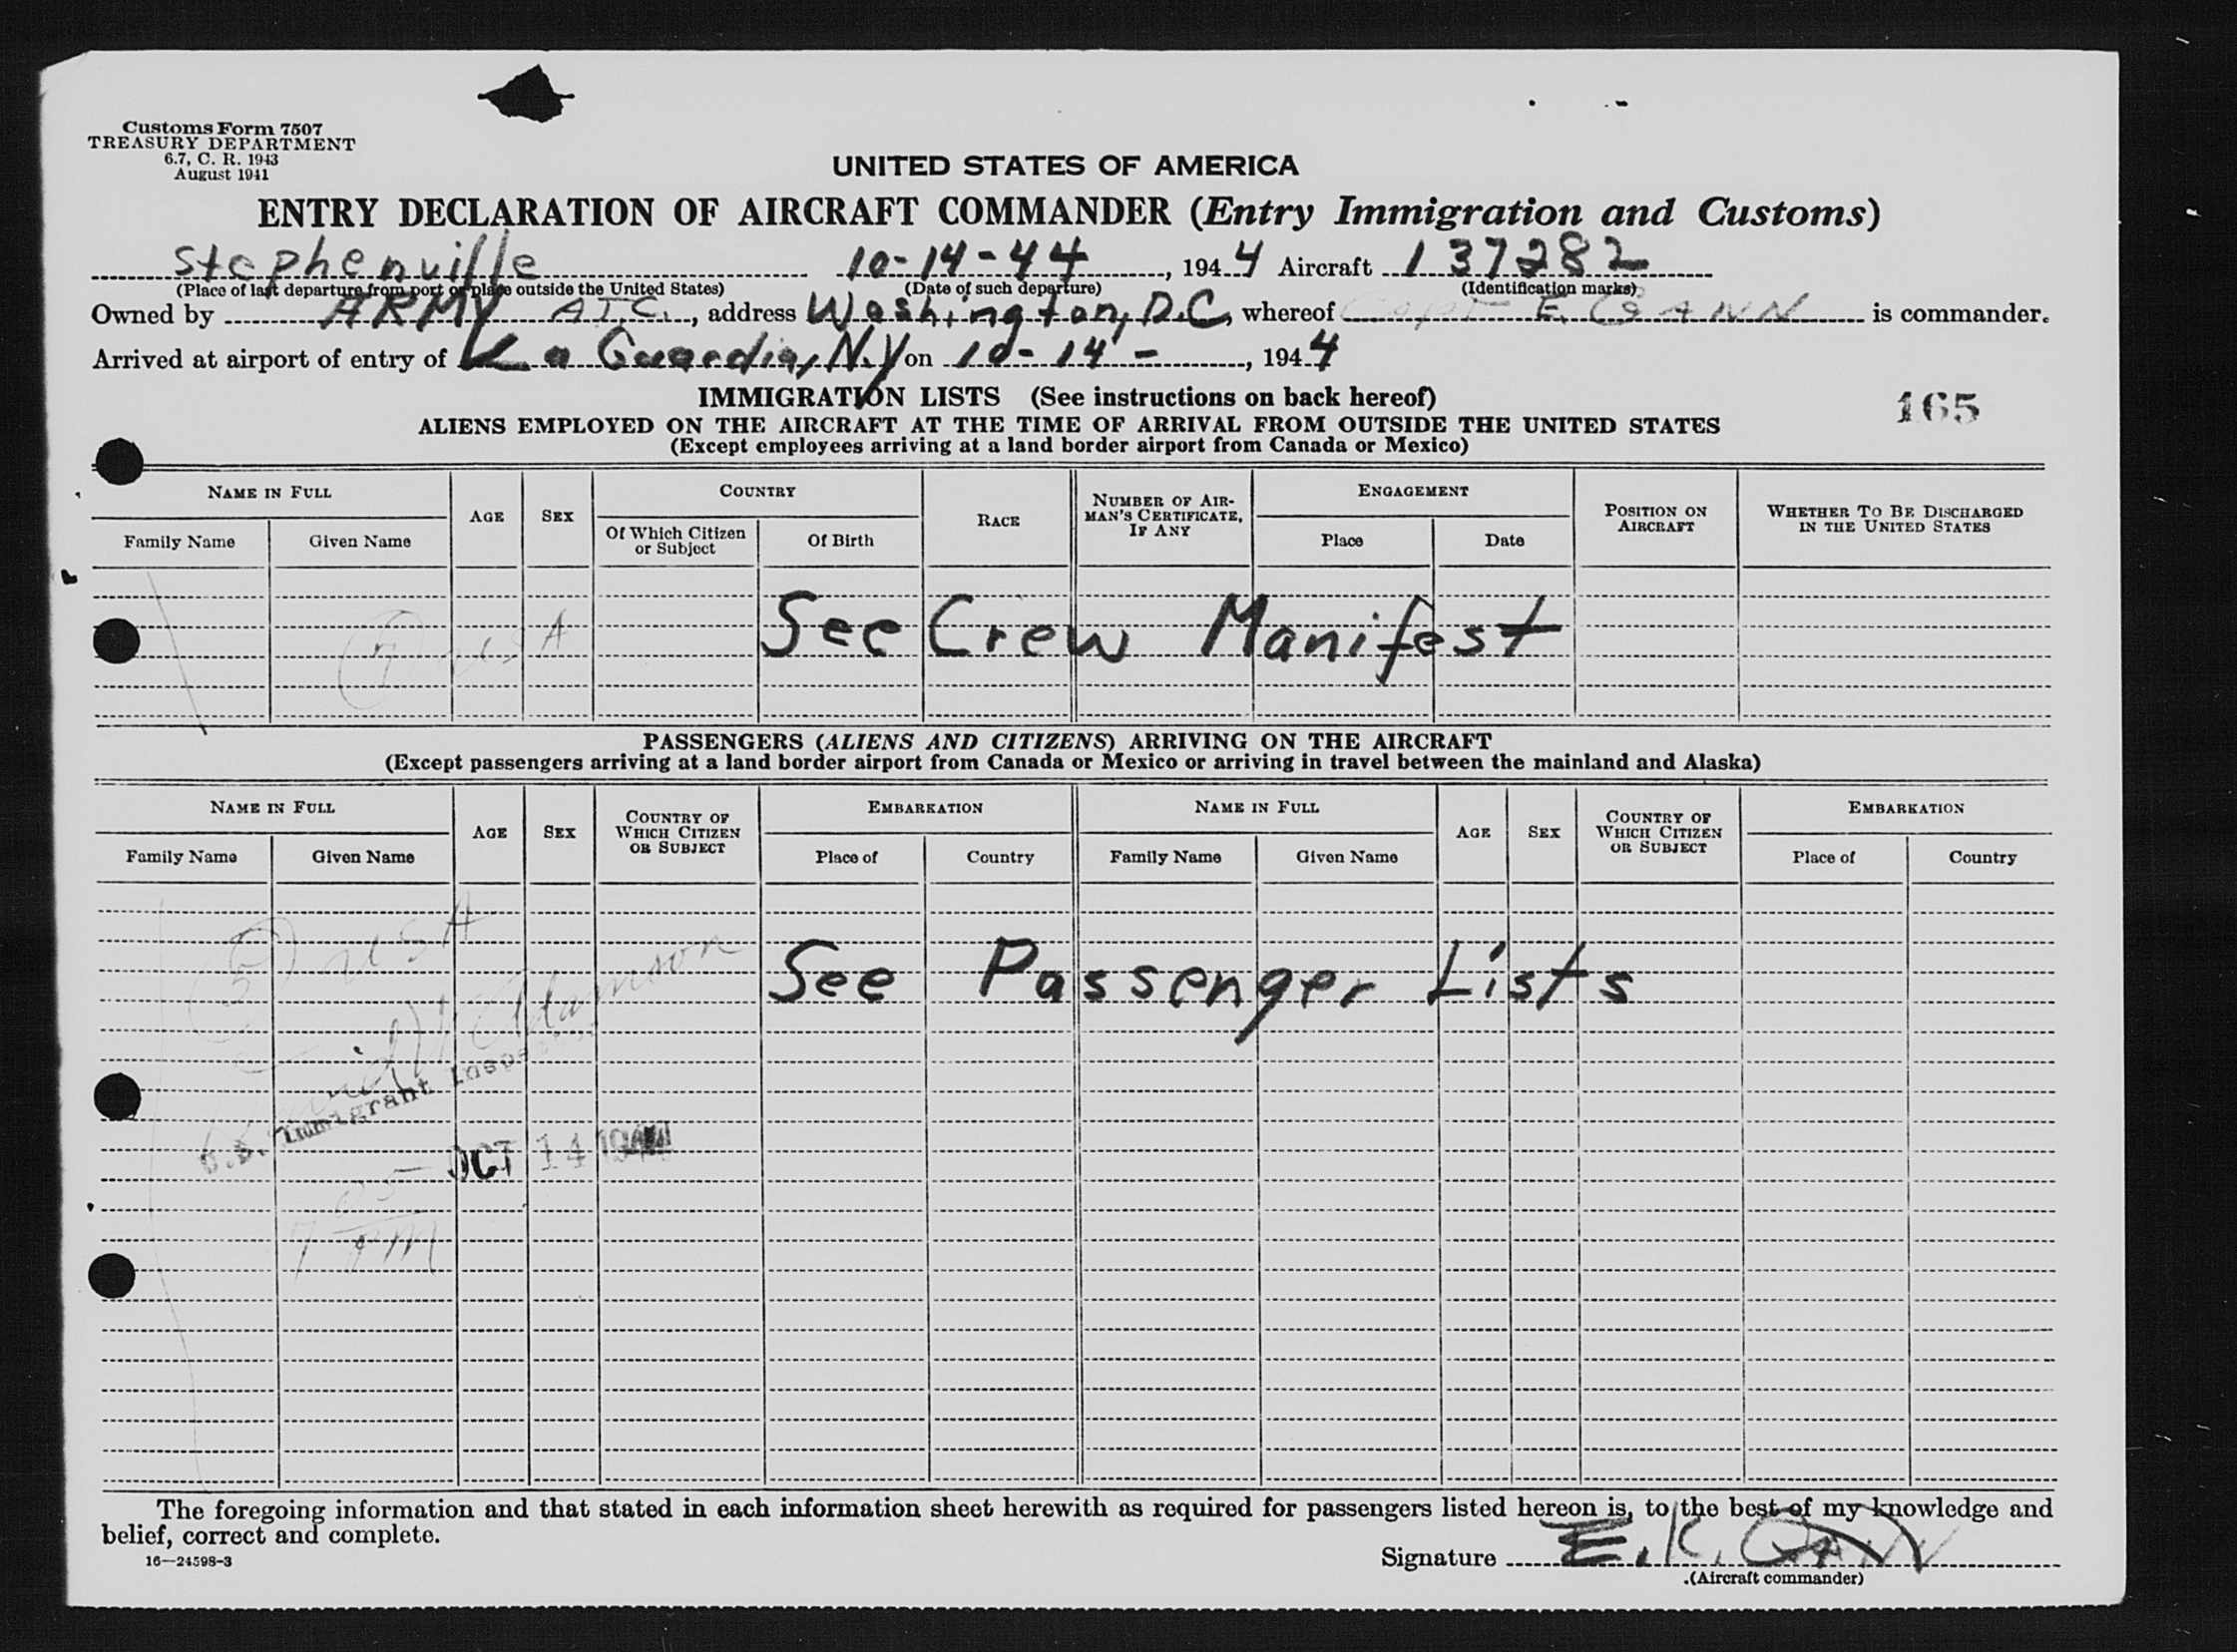 Customs Form 7507
TREASURY DEPARTMENT
6.7, C. R. 1943
August 1941
UNITED STATES OF AMERICA
ENTRY DECLARATION OF AIRCRAFT COMMANDER (Entry Immigration and Customs)
Stephenville 10-14-44, 1944 Aircraft 137282
(Place of last departure from port or place outside the United States) (Date of such departure) (Identification marks)
Owned by ARMY A.T.C., address Washington, D.C, whereof Capt E. GANN is commander.
Arrived at airport of entry of La Guardia, N.Y on 10-14-, 1944
IMMIGRATION LISTS (See instructions on back hereof)
165
ALIENS EMPLOYED ON THE AIRCRAFT AT THE TIME OF ARRIVAL FROM OUTSIDE THE UNITED STATES
(Except employees arriving at a land border airport from Canada or Mexico)
NAME IN FULL AGE SEX COUNTRY RACE NUMBER OF AIRMAN'S CERTIFICATE, IF ANY ENGAGEMENT POSITION ON AIRCRAFT WHETHER TO BE DISCHARGED IN THE UNITED STATES
Family Name Given Name Of Which Citizen or Subject Of Birth Place Date
7 USA
See Crew Manifest
PASSENGERS (ALIENS AND CITIZENS) ARRIVING ON THE AIRCRAFT
(Except passengers arriving at a land border airport from Canada or Mexico or arriving in travel between the mainland and Alaska)
NAME IN FULL AGE SEX COUNTRY OF WHICH CITIZEN OR SUBJECT EMBARKATION NAME IN FULL AGE SEX COUNTRY OF WHICH CITIZEN OR SUBJECT EMBARKATION
Family Name Given Name Place of Country Family Name Given Name Place of Country
5 USA
See Passenger Lists
U.S. Immigrant Inspector
OCT 14 1944
7 05 PM
The foregoing information and that stated in each information sheet herewith as required for passengers listed hereon is, to the best of my knowledge and
belief, correct and complete.
16—24598-3
Signature E. K. GANN
(Aircraft commander)